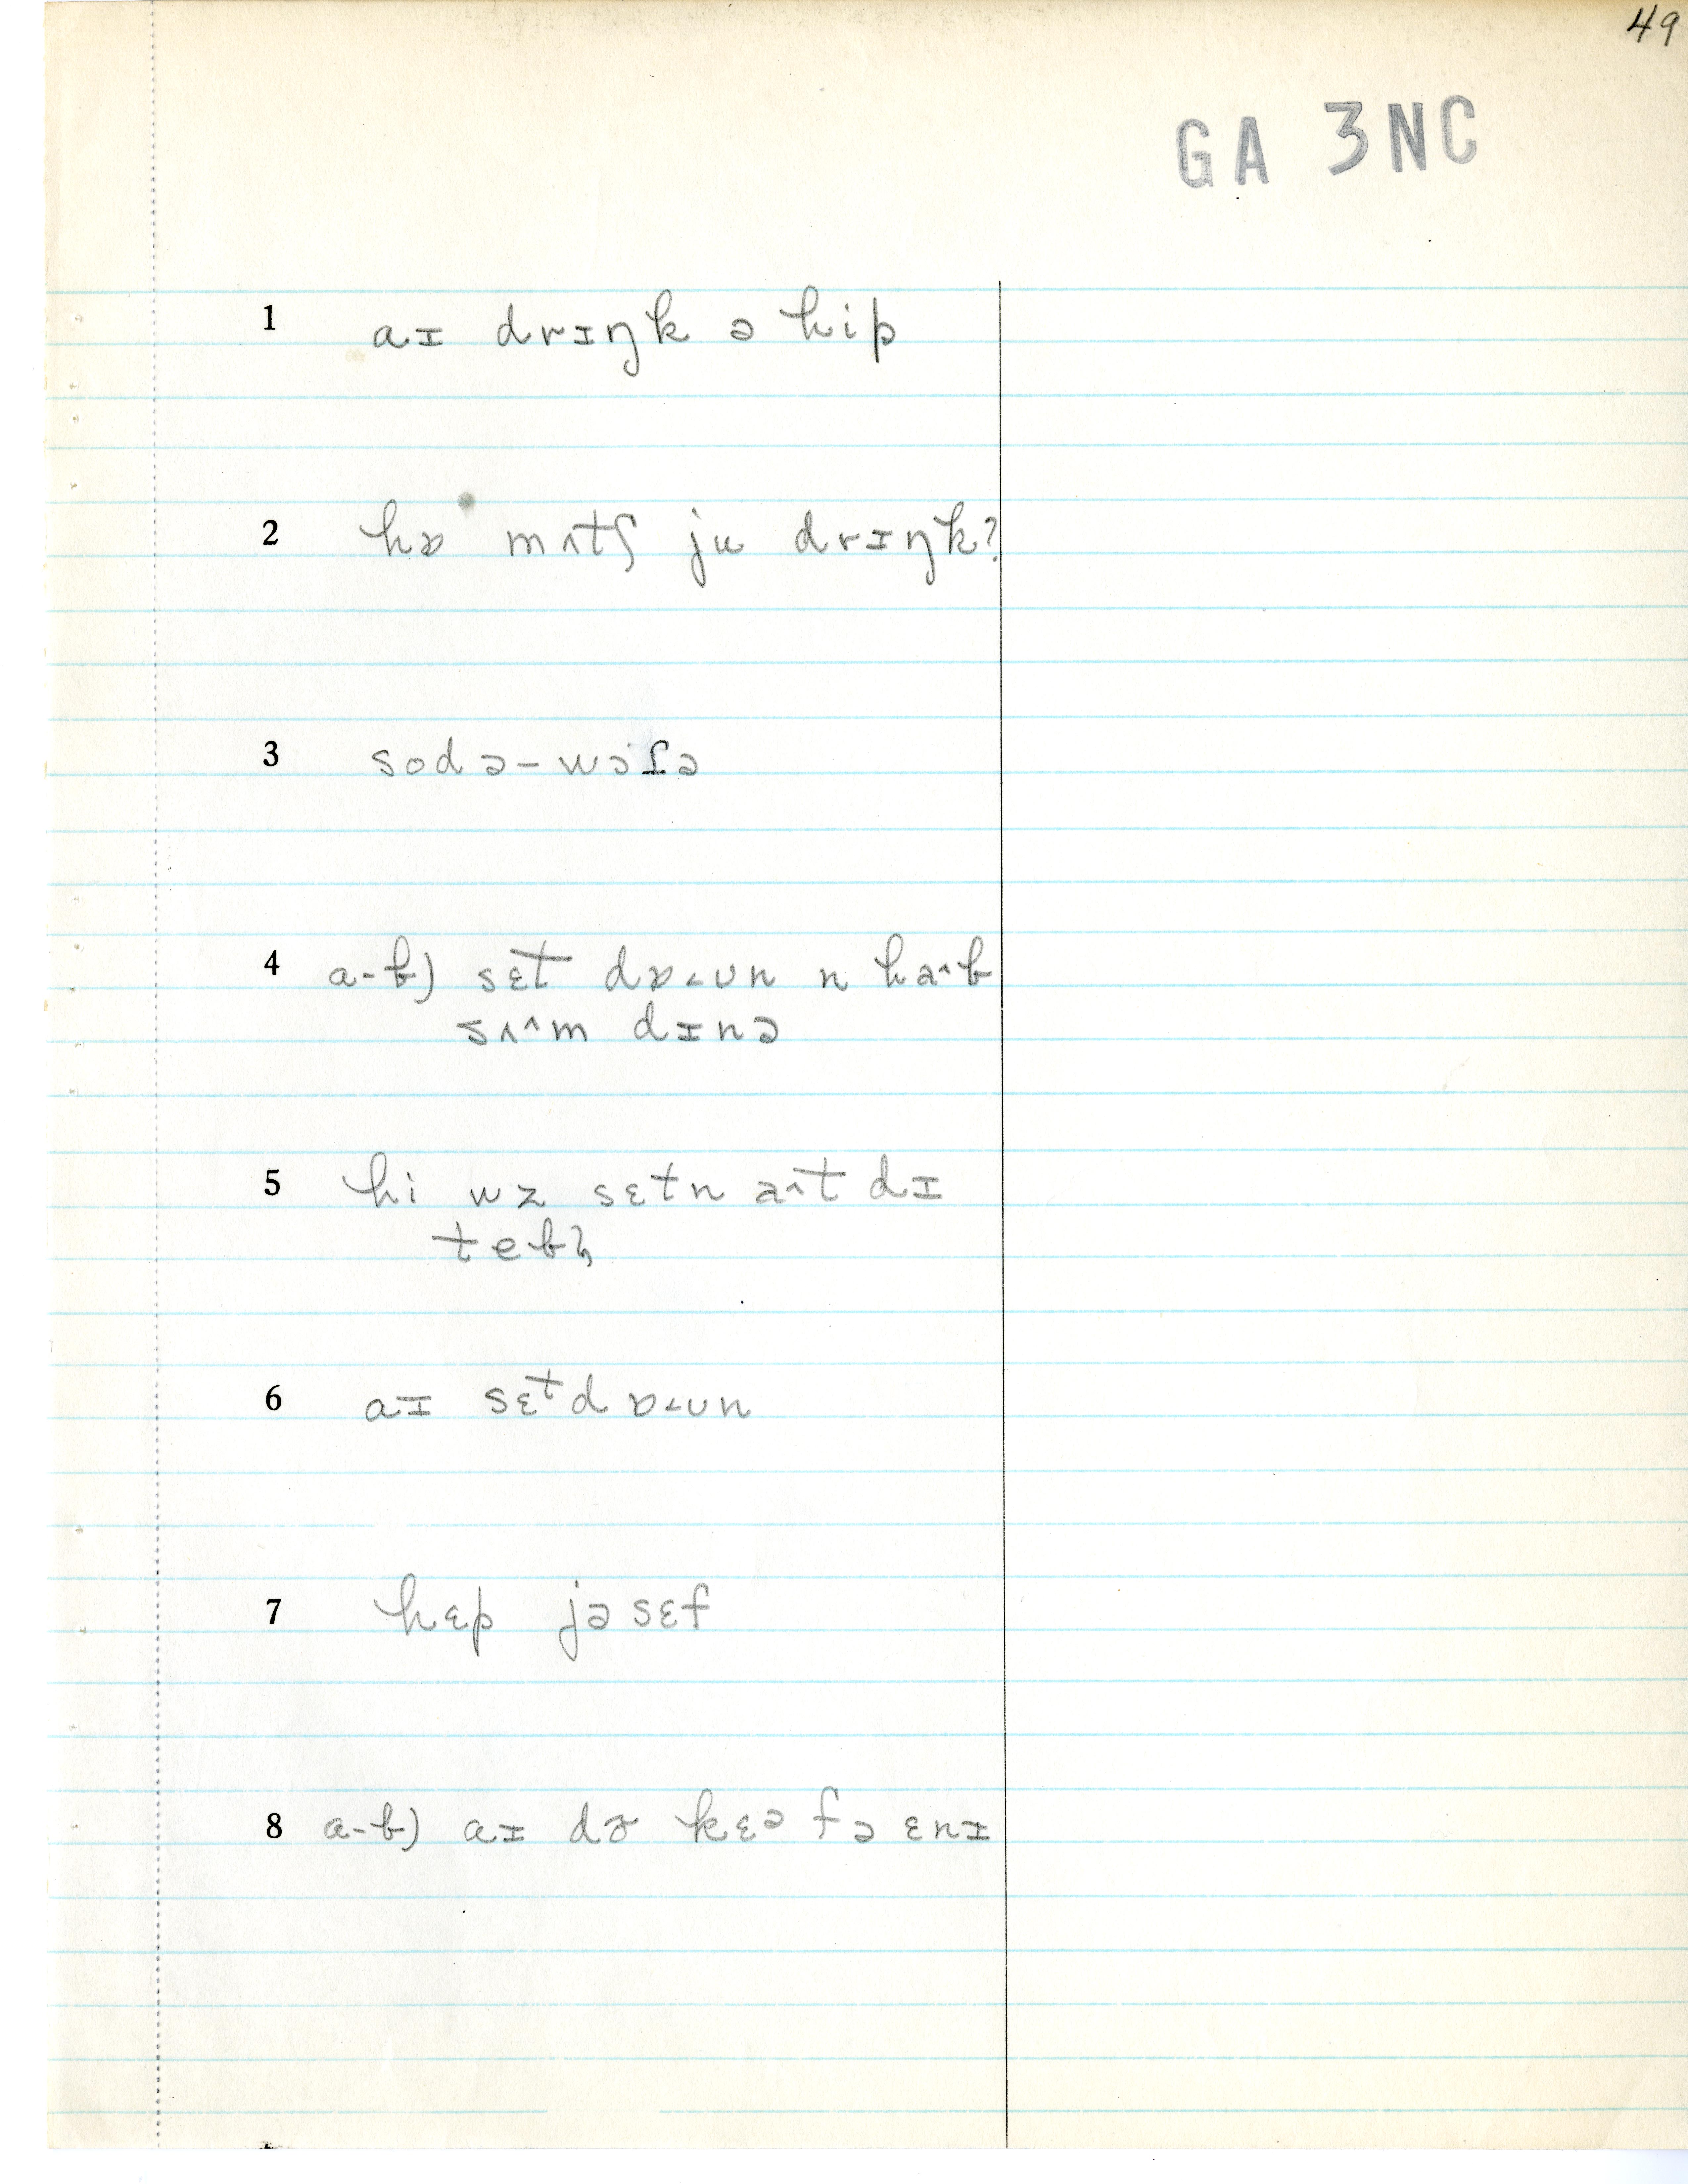 49
GA 3NC
1 aɪ drɪŋk ə hip
2 hɒ mʌtʃ ju drɪŋk?
3 sodə-wɔɾə
4 a-b) sɛt dɒ˂ʊn n ha˄b
sʌ˄m dɪnə
5 hi wz sɛtn a˄t dɪ
tebl̩
6 aɪ sɛᵗdɒ˂ʊn
7 hɛp jəsɛf
8 a-b) aɪ kɛə fə ɛnɪ